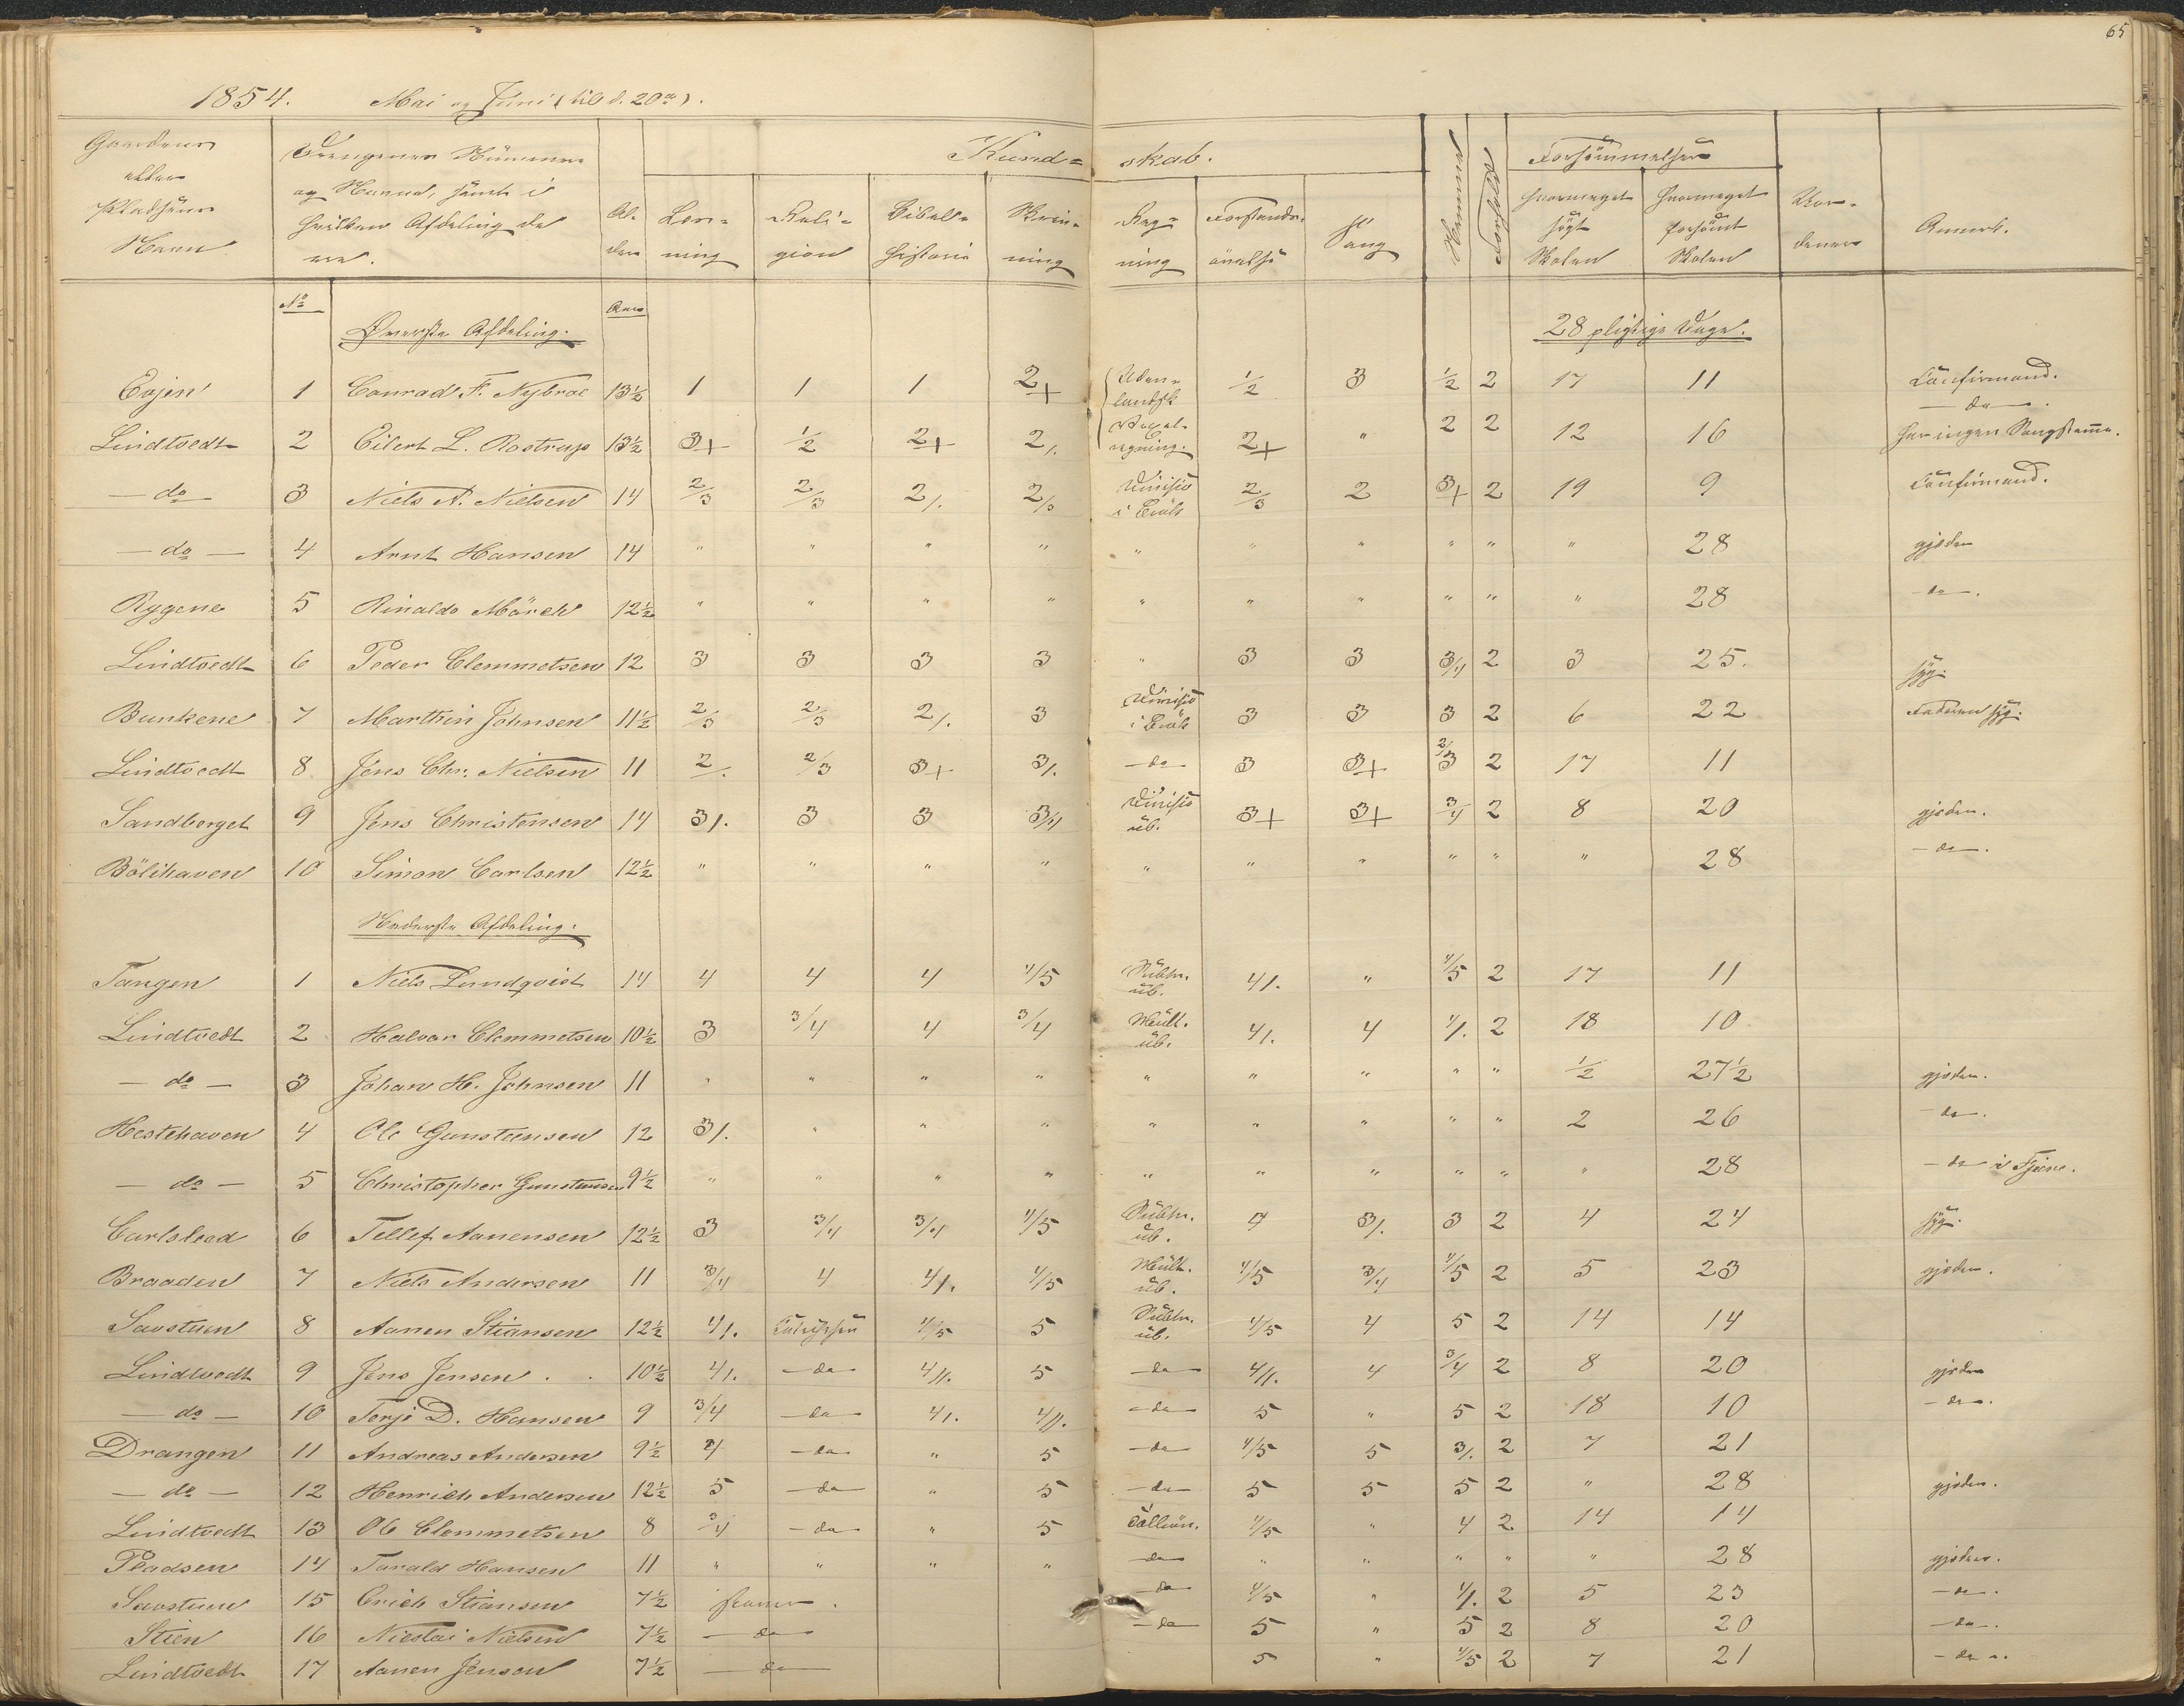 65
1854. Mai og Juni (til d. 20de).
Gaardens eller Pladsens Navn
Drengenes Nummer og Navne, samt i hvilken Afdeling de ere.
Alder
Kundskab.
Læsning
Religion
Bibelhistorie
Skrivning
Regning
Forstandsøvelse
Sang
Nemme
Forhold
Forsømmelser
hvormeget søgt Skolen
hvormeget forsømt Skolen
Anmrk.
No Øverste Afdeling. Aar 28 pligtige Dage.
Evjen 1 Conrad F. Nybroe 13½ 1 1 1 2+ Udenlandsk ½ 3 ½ 2 17 11 Confirmand.
Lindtvedt 2 Eilert L. Rostrup 13½ 3+ ½ 2+ 2/. regning. 2+ " 2 2 12 16 — do — . har ingen Sangstemme.
— do — 3 Niels N. Nielsen 14 2/3 2/3 2/. 2/3 Divisio i Brøk 2/3 2 3+ 2 19 9 Confirmand.
— do — 4 Arnt Hansen 14 " " " " " " " " " " 28 gjeder
Rygene 5 Rinaldo Mörch 12½ " " " " " " " " " " 28 — do — .
Lindtvedt 6 Peder Clemmetsen 12 3 3 3 3 " 3 3 3/4 2 3 25. syg.
Bunkene 7 Marthin Johnsen 11½ 2/3 2/3 2/. 3 Divisio i Brøk 3 3 3 2 6 22 Faderen syg.
Lindtvedt 8 Jens Chr. Nielsen 11 2/. 2/3 3+ 3/. — do — 3 3+ 2/3 2 17 11
Sandberget 9 Jens Christensen 14 3/. 3 3 3/4 Divisio ub. 3+ 3+ 3/4 2 8 20 gjeder.
Bölihaven 10 Simon Carlsen 12½ " " " " " " " " " " 28 — do — .
Nederste Afdeling.
Tangen 1 Niels Lundqvist 14 4 4 4 4/5 Subtr. ub. 4/. " 4/5 2 17 11
Lindtvedt 2 Halvor Clemmetsen 10½ 3 3/4 4 3/4 Mult. ub. 4/. 4 4/. 2 18 10
— do — 3 Johan H. Johnsen 11 " " " " " " " " " ½ 27½ gjeder.
Hestehaven 4 Ole Gunsteensen 12 3/. " " " " " " " " 2 26 — do — .
— do — 5 Christopher Gunstensen 9½ " " " " " " " " " " 28 — do i Fjære.
Carlsleed 6 Tellef Aanensen 12½ 3 3/4 3/4 4/5 Subtr. ub. 4 3/. 3 2 4 24 syg.
Braaden 7 Niels Andersen 11 3/4 4 4/. 4/5 Mult. ub. 4/5 3/4 4/5 2 5 23 gjeder.
Savstuen 8 Aanen Stiansen 12½ 4/. 4/5 5 Subtr. ub. 4/5 4 5 2 14 14
Lindtvedt 9 Jens Jensen . . 10½ 4/. — do — 4//. 5 — do — 4//. 4 3/4 2 8 20 gjeder
— do — 10 Terje D. Hansen 9 3/4 — do — 4/. 4//. — do — 5 " 5 2 18 10 — do — .
Drangen 11 Andreas Andersen 9½ 4 — do — " 5 — do — 4/5 5 3/. 2 7 21
— do — 12 Henrich Andersen 12½ 5 — do — " 5 — do — 5 5 5 2 " 28 gjeder.
Lindtvedt 13 Ole Clemmetsen 8 3/4 — do — " 5 4/5 " 4 2 14 14
Pladsen 14 Tarald Hansen 11 " " " " — do — " " " " " 28 gjeder.
Savstuen 15 Erich Stiansen 7½ — do — 4/5 " 4/. 2 5 23 — do — .
Stien 16 Nicolai Nielsen 7½ — do — — do — 5 " 5 2 8 20 — do — .
Lindtvedt 17 Aanen Jensen 7½ — do — 5 " 4/5 2 7 21 — do — .